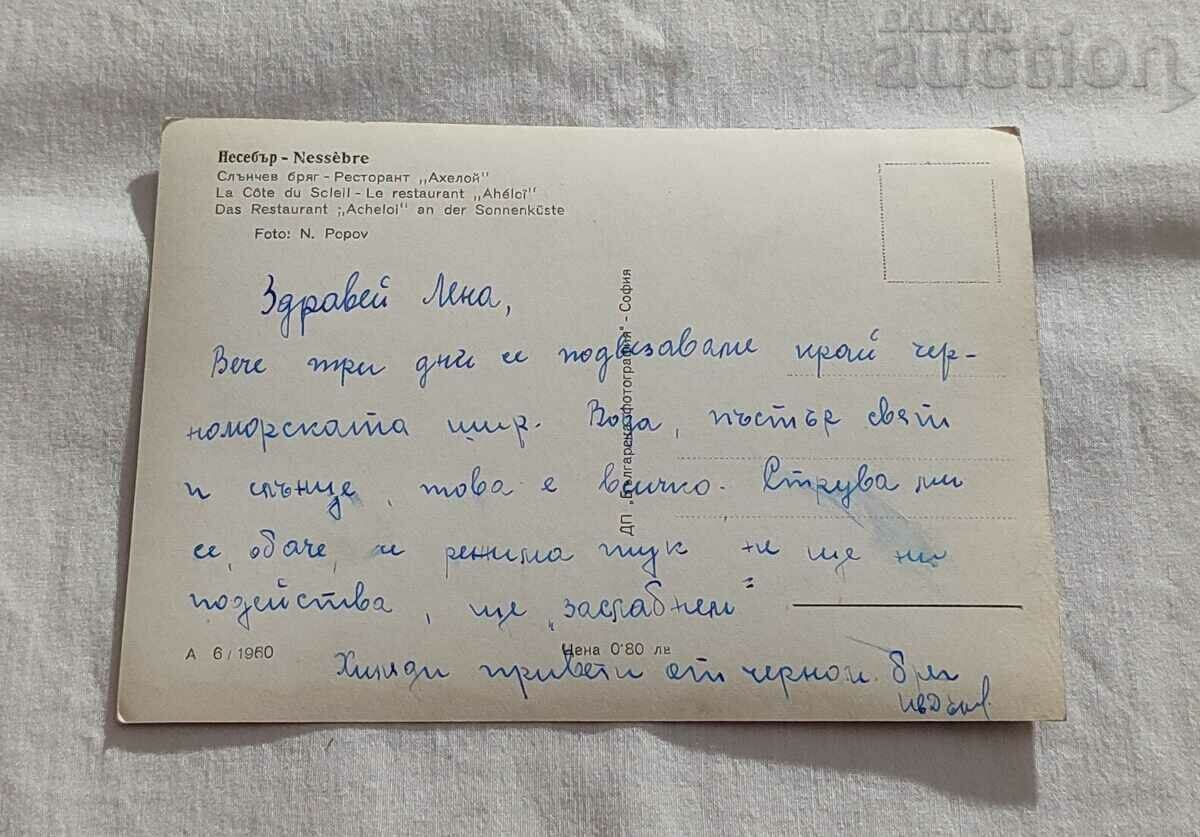 Несебър - Nessèbre
Слънчев бряг - Ресторант „Ахелой"
La Côte du Soleil - Le restaurant „Ahéloï"
Das Restaurant „Acheloi" an der Sonnenküste
Foto: N. Popov
Здравей Лена,
Вече три дни се подвизаваме край чер-
номорската шир. Вода, пъстър свят
и слънце, това е всичко. Струва ми
се, обаче, че режима тук не ще ни
подейства, ще „заслабнем"
Хиляди привети от черном. бряг
ДП „Българска фотография" - София
А 6/1960
Цена 0'80 лв